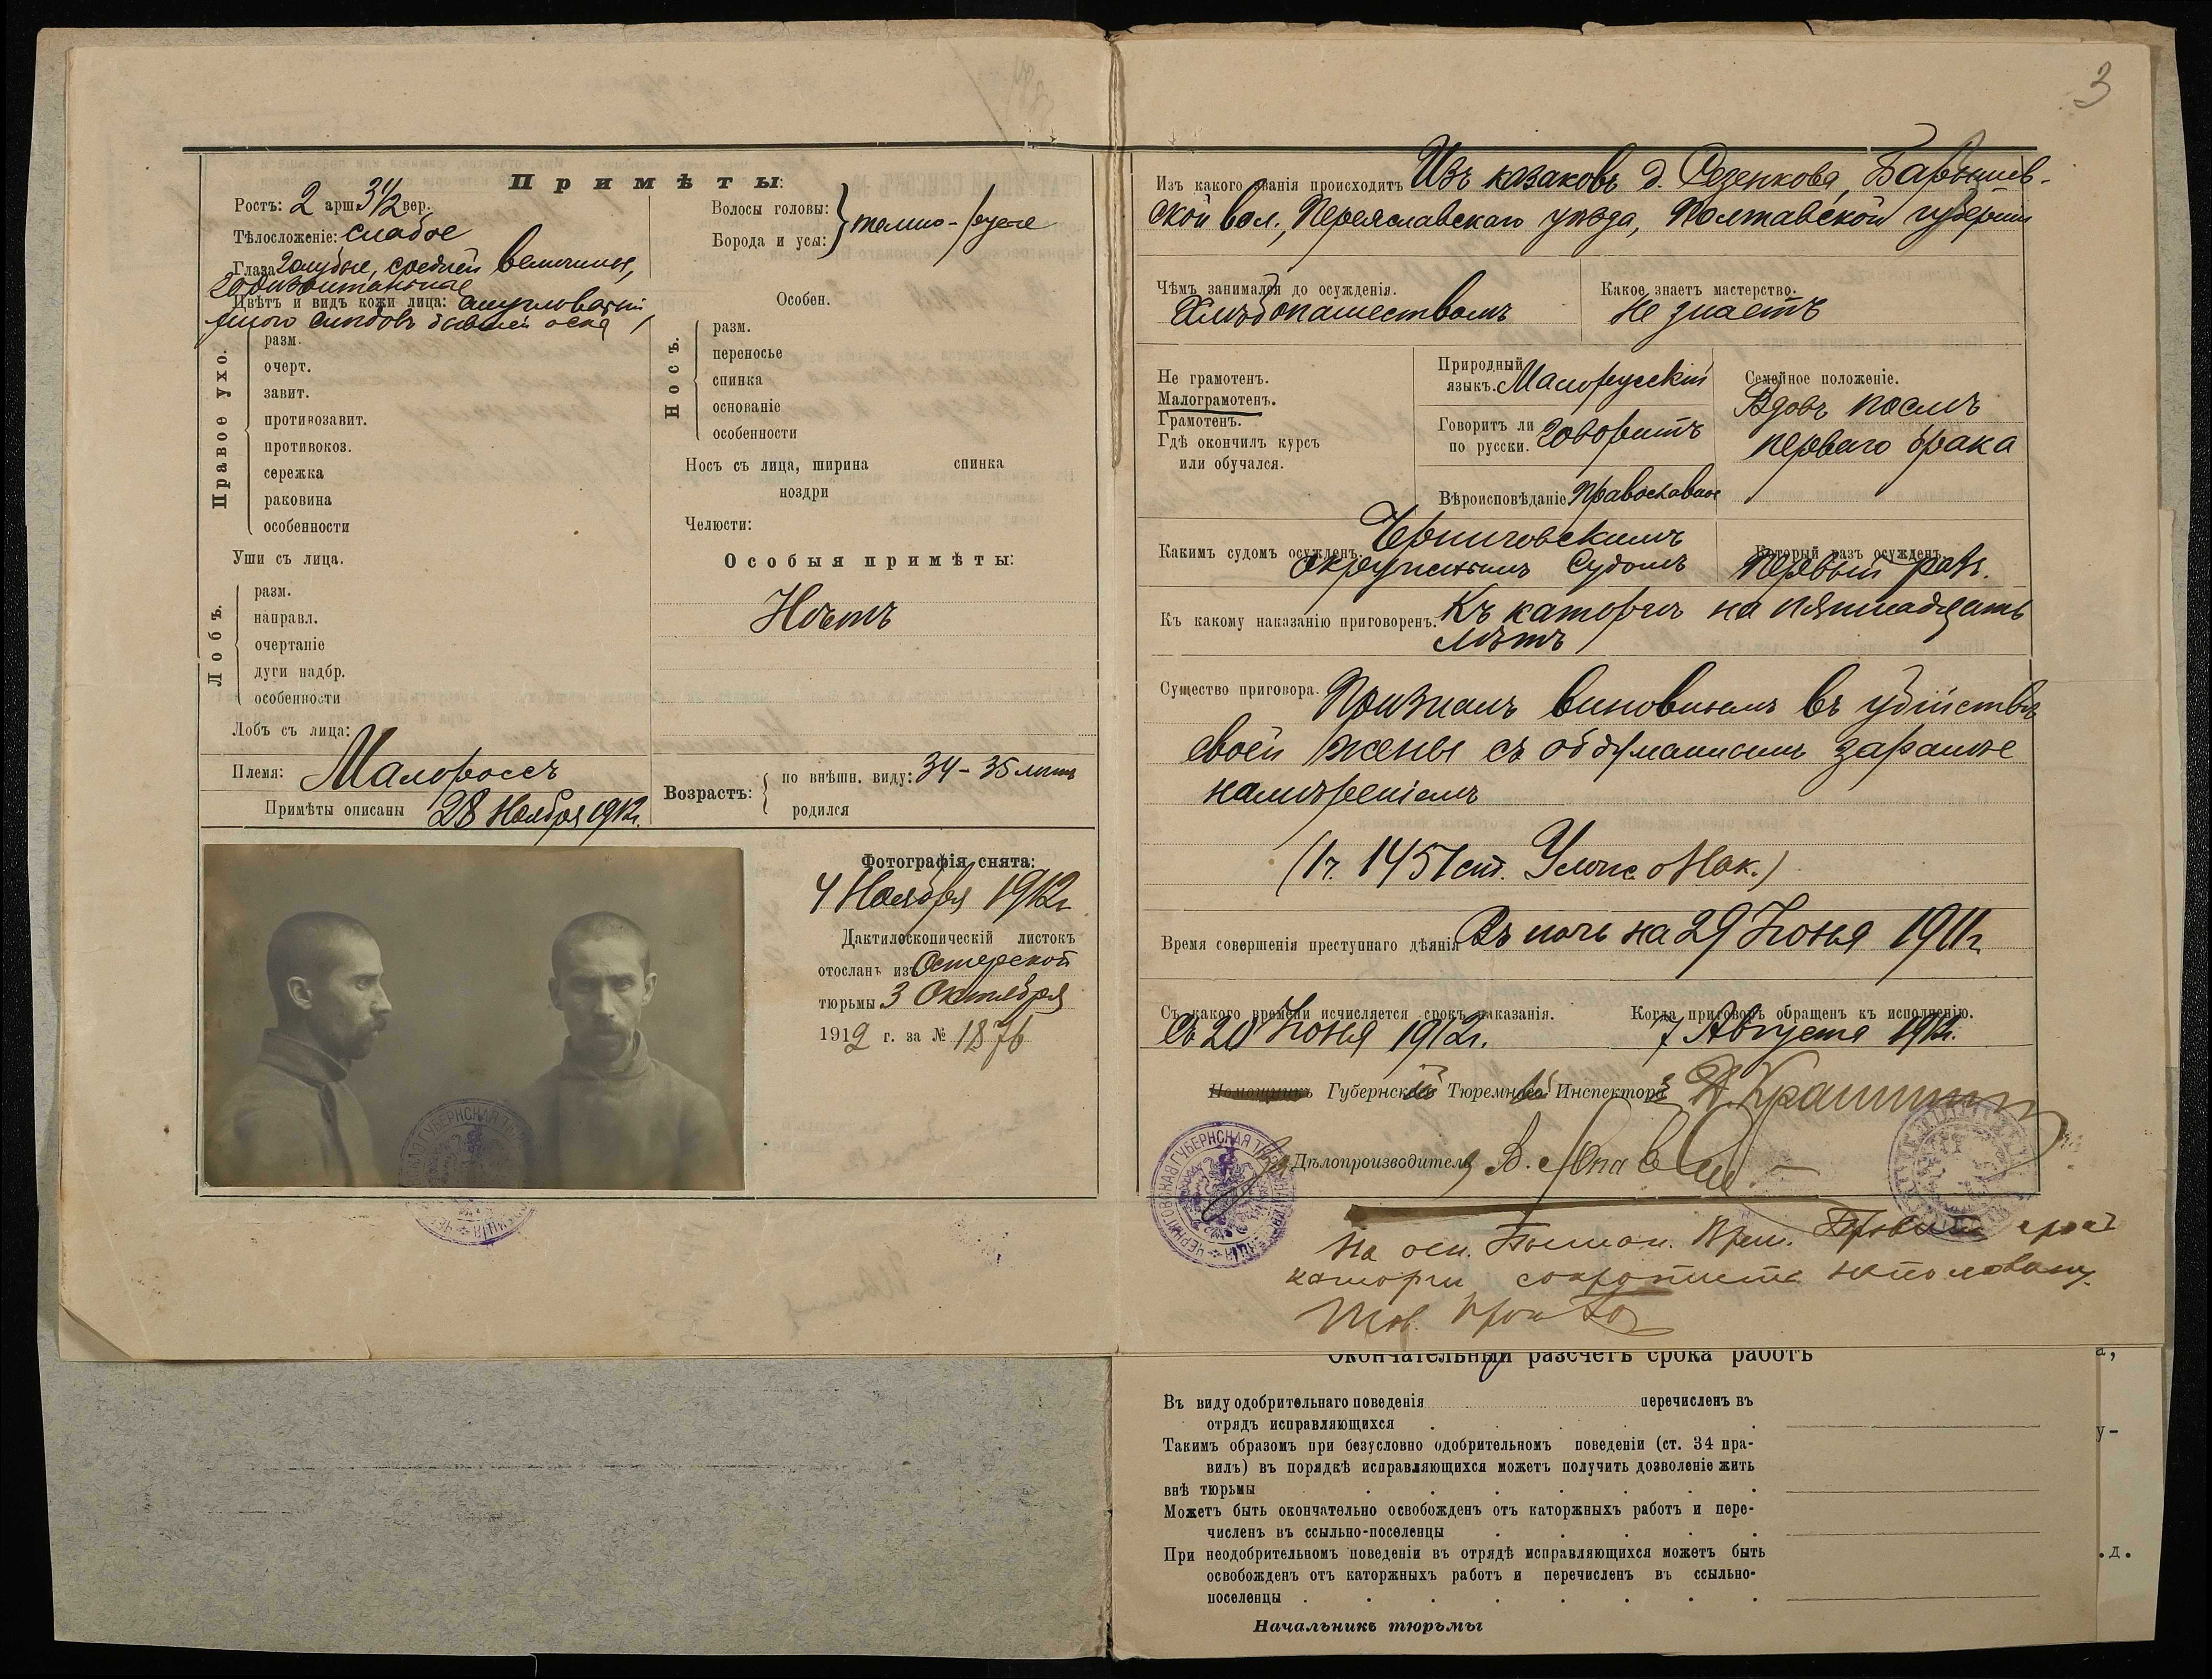 3
Примѣты:
Ростъ: 2 арш 3½ вер.
Тѣлосложеніе: слабое
Глаза голубые, средней величины,
Цвѣтъ и видъ кожи лица: смугловатый
много слѣдовъ бывшей оспы
Правое ухо.
разм.
очерт.
завит.
противозавит.
противокоз.
сережка
раковина
особенности
Уши съ лица.
Лобъ.
разм.
направл.
очертаніе
дуги надбр.
особенности
Лобъ съ лица:
Племя: Малороссъ
Примѣты описаны 28 Ноября 1912г.
Волосы головы:
Борода и усы:
} темно-русые
Особен.
Носъ.
разм.
переносье
спинка
основаніе
особенности
Носъ съ лица, ширина спинка
ноздри
Челюсти:
Особыя примѣты:
Нѣтъ
Возрастъ:
по внѣшн. виду: 34-35 лѣтъ
родился
Фотографія снята:
4 Ноября 1912г
Дактилоскопическій листокъ
отосланъ изъ Остерской
тюрьмы 3 Октября
1912 г. за № 1876
Изъ какого званія происходитъ Изъ казаковъ д. Селенкова, Барышев-
ской вол., Переяславскаго уѣзда, Полтавской губерніи
Чѣмъ занимался до осужденія.
Хлѣбопашествомъ
Какое знаетъ мастерство.
Не знаетъ
Не грамотенъ.
Малограмотенъ.
Грамотенъ.
Гдѣ окончилъ курсъ
или обучался.
Природный
языкъ. Малорусскій
Говоритъ ли
по русски. Говоритъ
Вѣроисповѣданіе Православное
Семейное положеніе.
Вдовъ послѣ
перваго брака
Какимъ судомъ осужденъ. Черниговскимъ
Окружнымъ Судомъ
Который разъ осужденъ.
Первый разъ.
Къ какому наказанію приговоренъ. Къ каторгѣ на пятнадцать
лѣтъ
Существо приговора. Признанъ виновнымъ въ убійствѣ
своей жены съ обдуманнымъ заранѣе
намѣреніемъ
(1ч. 1451 ст. Улож. о Нак.)
Время совершенія преступнаго дѣянія Въ ночь на 29 Іюня 1911г
Съ какого времени исчисляется срокъ наказанія.
Съ 20 Іюня 1912г.
Когда приговоръ обращенъ къ исполненію.
7 Августа 1912г.
Помощникъ Губернскій Тюремный Инспекторъ
Дѣлопроизводителя
ЧЕРНИГОВСКАЯ ГУБЕРНСКАЯ ТЮРЕМНАЯ ИНСПЕКЦІЯ
На осн. Врем. срокъ
каторги сокротить наполовину.
Тов. Прок
Окончательный разсчетъ срока работъ
Въ виду одобрительнаго поведенія перечисленъ въ
отрядъ исправляющихся
Такимъ образомъ при безусловно одобрительномъ поведеніи (ст. 34 пра-
вилъ) въ порядкѣ исправляющихся можетъ получить дозволеніе жить
внѣ тюрьмы
Можетъ быть окончательно освобожденъ отъ каторжныхъ работъ и пере-
численъ въ ссыльно-поселенцы
При неодобрительномъ поведеніи въ отрядѣ исправляющихся можетъ быть
освобожденъ отъ каторжныхъ работъ и перечисленъ въ ссыльно-
поселенцы
Начальникъ тюрьмы
а,
у-
.д.